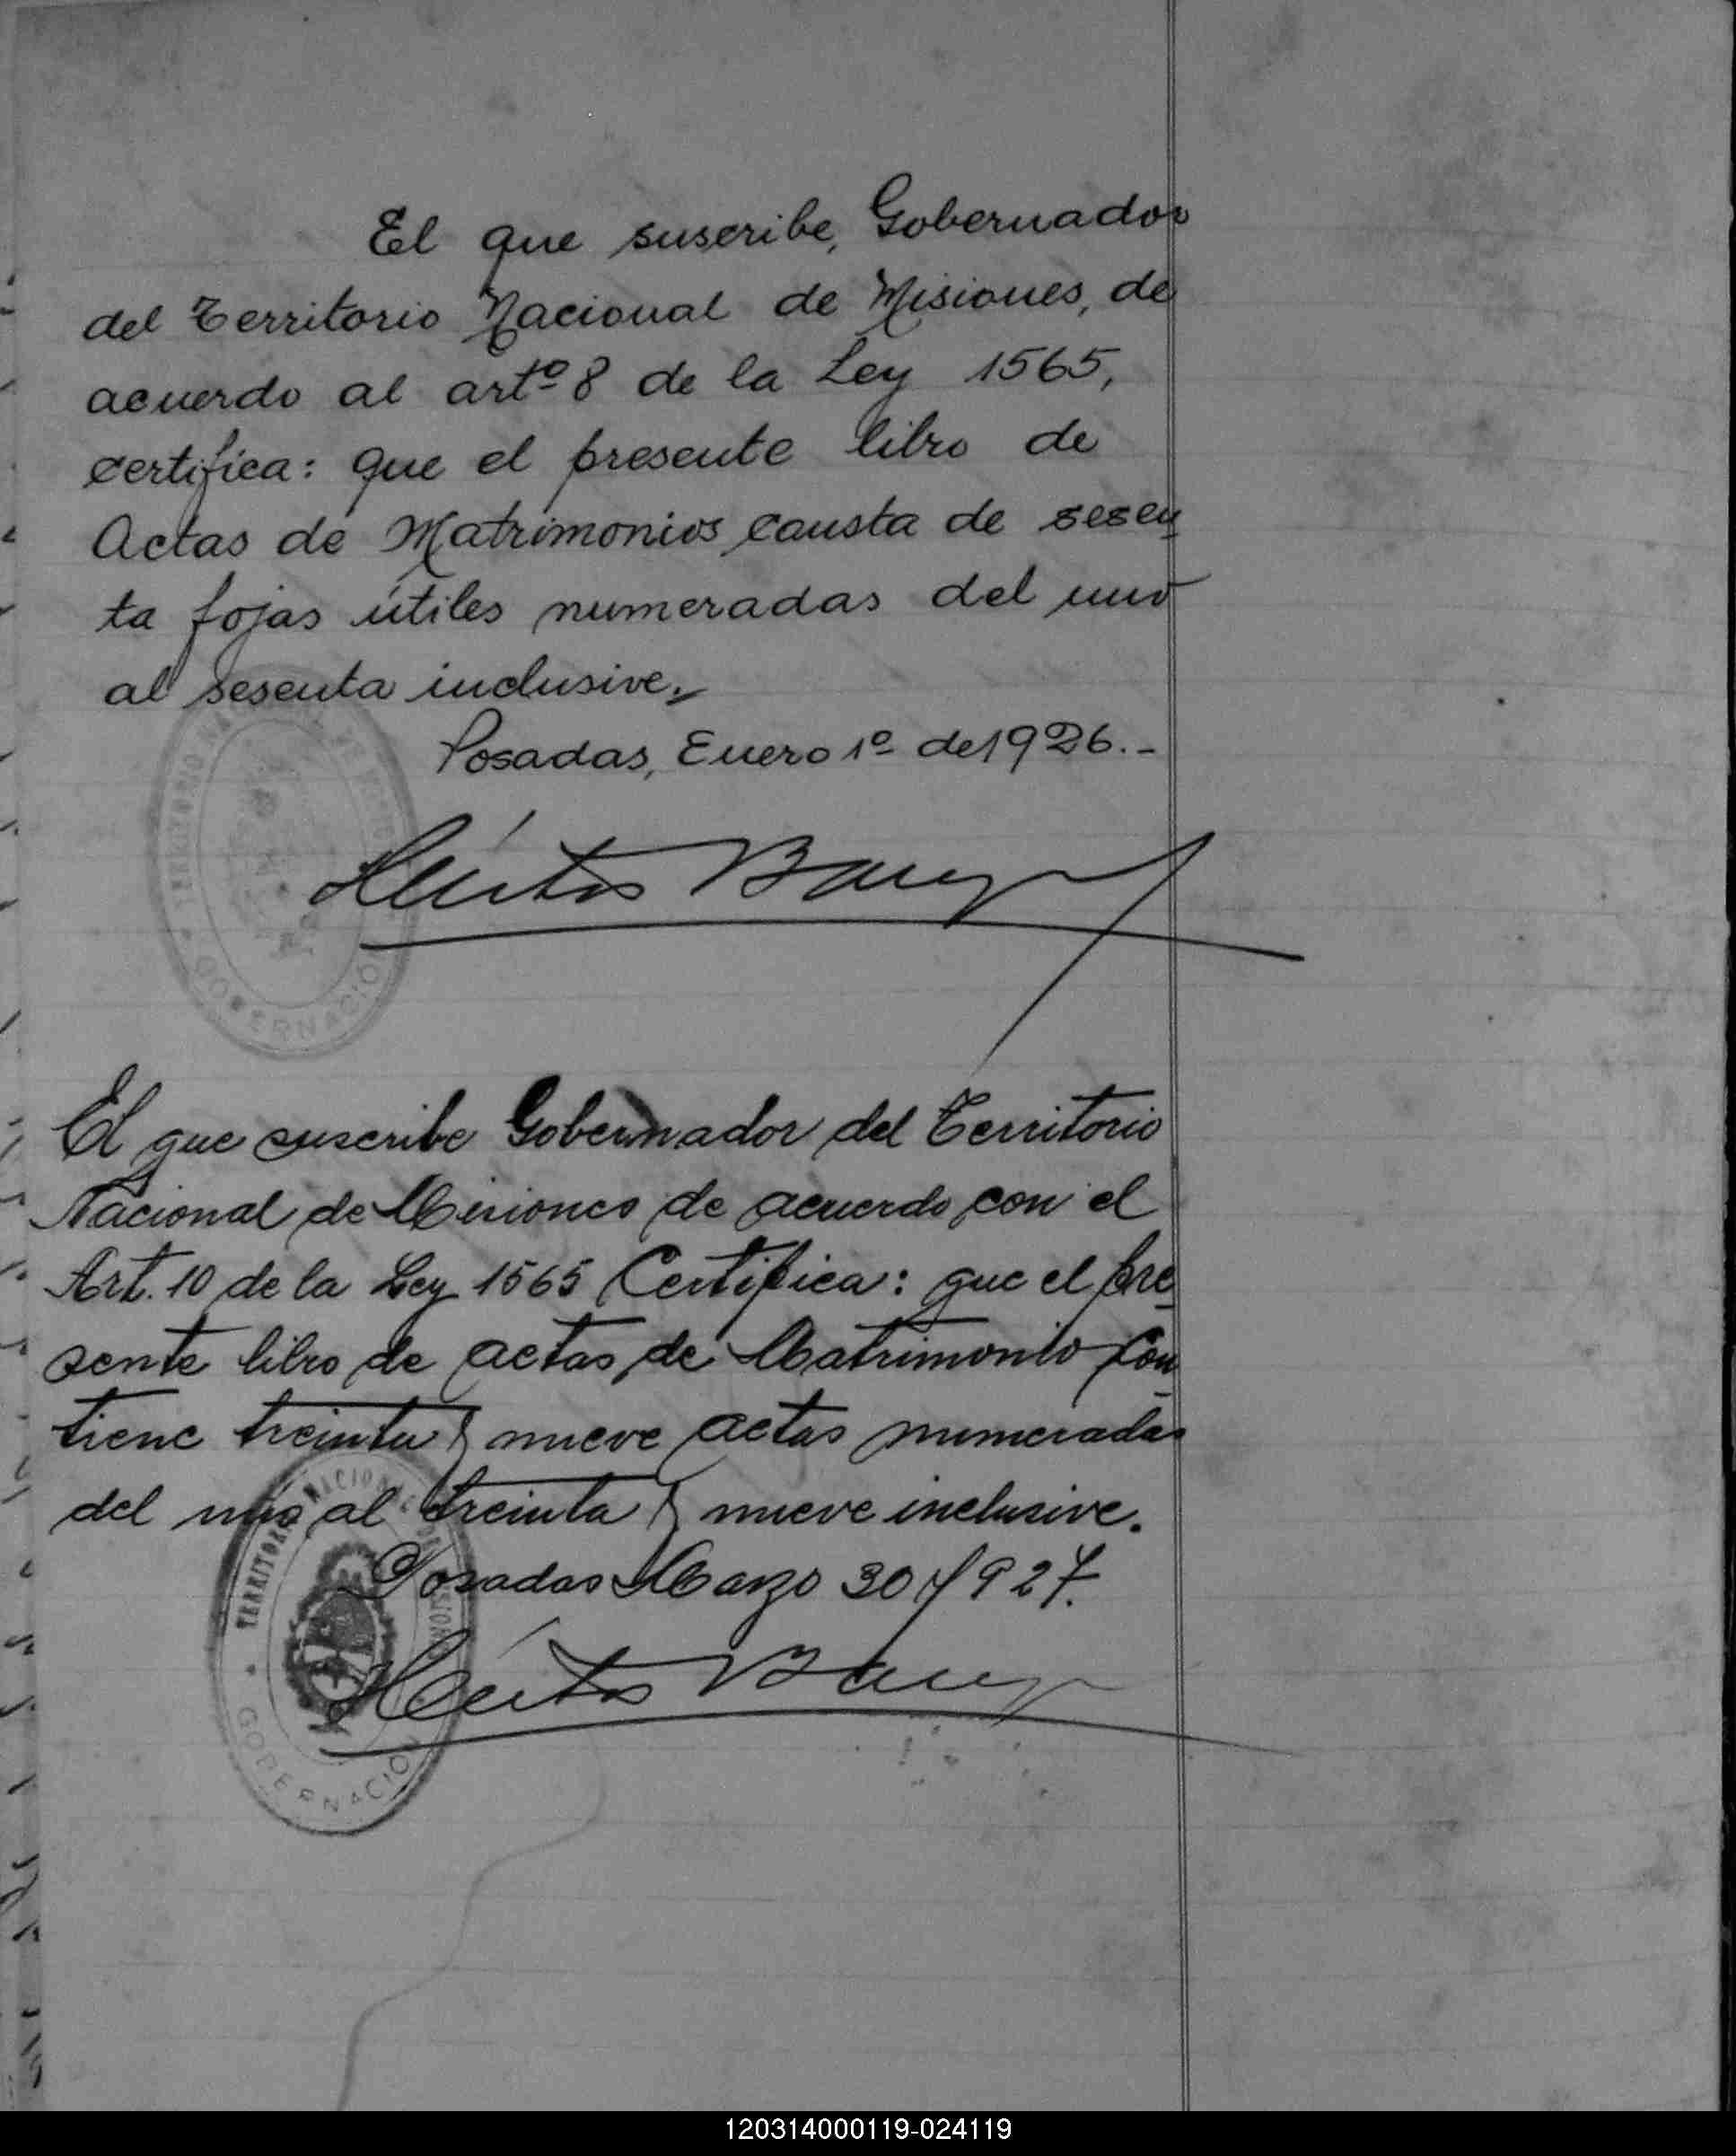 El que suscribe, Gobernador
del Territorio Nacional de Misiones, de
acuerdo al artº 8 de la Ley 1565,
certifica: que el presente libro de
Actas de Matrimonios, consta de sesen
ta fojas útiles numeradas del uno
al sesenta inclusive.
Posadas, Enero 1º de 1926.-
Héctor Barreyro
TERRITORIO NACIONAL DE MISIONES
GOBERNACION
El que suscribe Gobernador del Territorio
Nacional de Misiones de acuerdo con el
Art. 10 de la Ley 1565 Certifica: que el pre
sente libro de actas de Matrimonio con
tiene treinta y nueve actas numeradas
del uno al treinta y nueve inclusive.
Posadas Marzo 30/927.
Héctor
TERRITORIO NACIONAL DE MISIONES
GOBERNACION
120314000119-024119